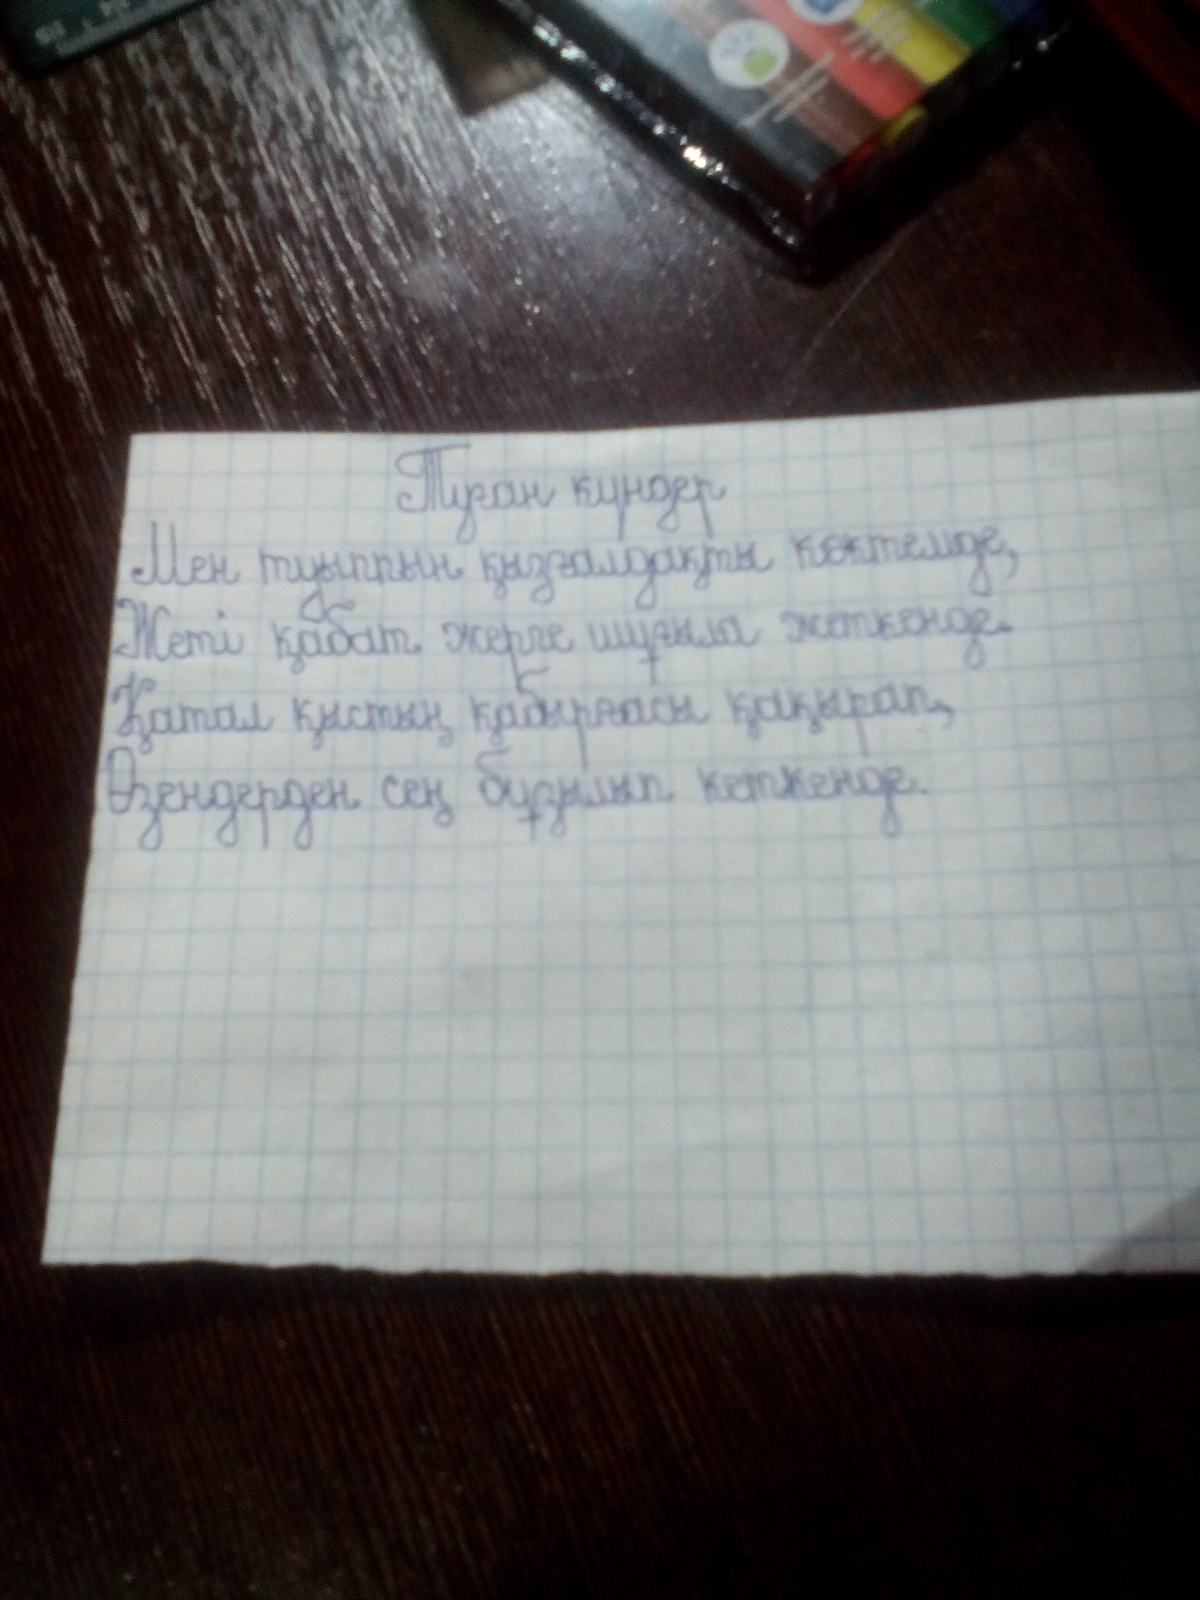 Туған күндер
Мен туыппын қызғалдақты көктемде,
Жеті қабат жерге шұғыла жеткенде.
Қатал қыстың қабырғасы қақырап,
Өзендерден сең бұзылып кеткенде.